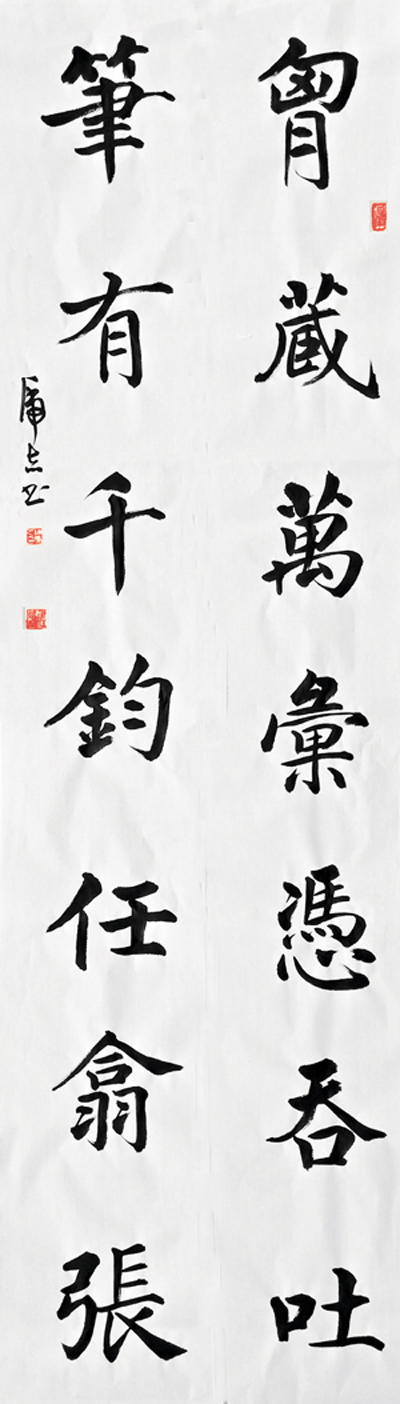 胷藏萬彙憑吞吐
筆有千鈞任翕張